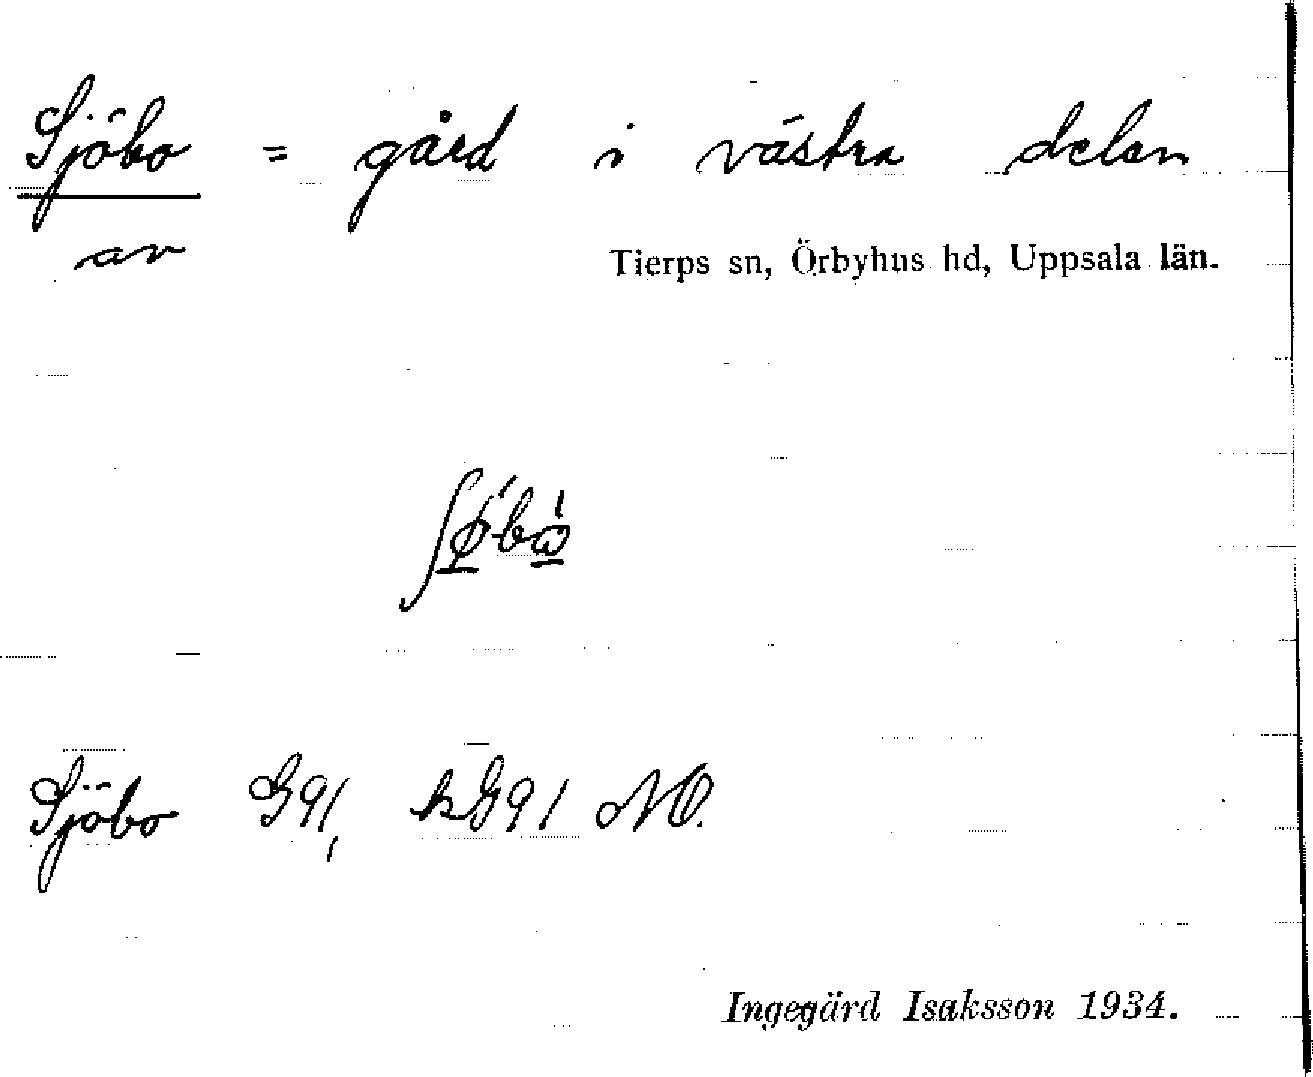 Sjöbo = gård i västra delen
av
Tierps sn, Örbyhus hd, Uppsala län.
Sjöbo G91, kG91 NO.
Ingegärd Isaksson 1934.